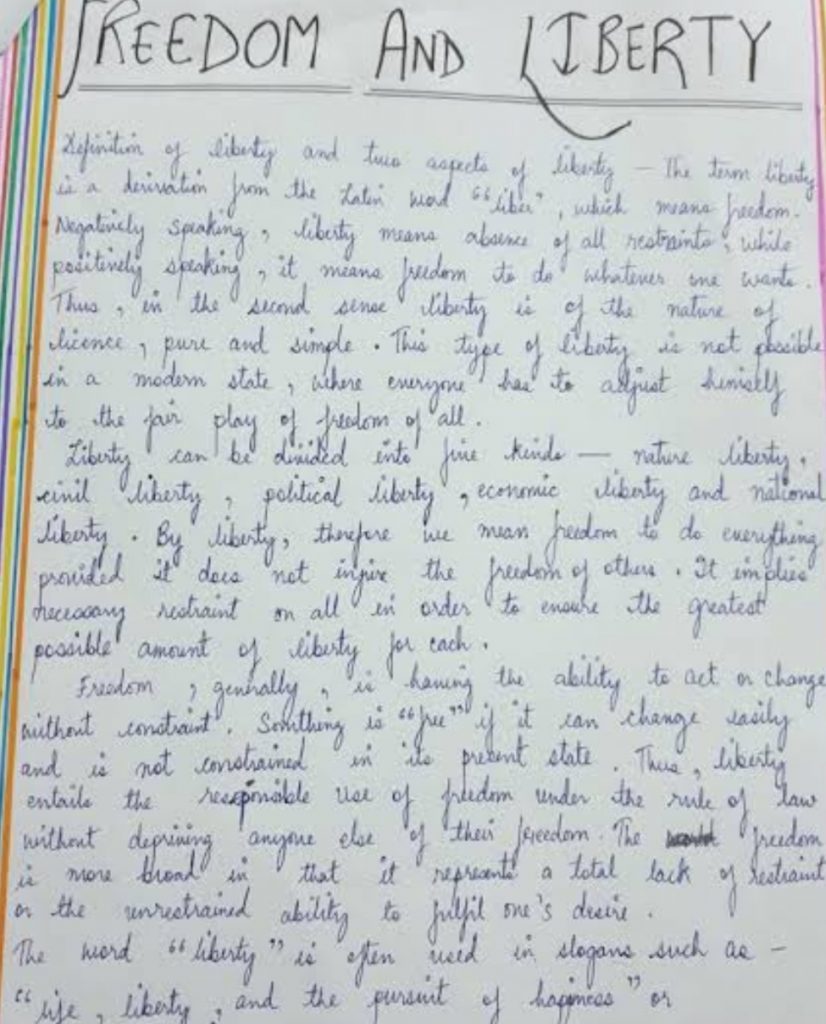 FREEDOM AND LIBERTY
Definition of liberty and two aspects of liberty — The term liberty
is a derivation from the Latin word “liber”, which means freedom.
Negatively speaking, liberty means absence of all restraints, while
positively speaking, it means freedom to do whatever one wants.
Thus, in the second sense liberty is of the nature of
licence, pure and simple. This type of liberty is not possible
in a modern state, where everyone has to adjust himself
to the fair play of freedom of all.
Liberty can be divided into five kinds — nature liberty,
civil liberty, political liberty, economic liberty and national
liberty. By liberty, therefore we mean freedom to do everything
provided it does not injure the freedom of others. It implies
necessary restraint on all in order to ensure the greatest
possible amount of liberty for each.
Freedom, generally, is having the ability to act or change
without constraint. Somthing is “free” if it can change easily
and is not constrained in its present state. Thus, liberty
entails the responsible use of freedom under the rule of law
without depriving anyone else of their freedom. The freedom
is more broad in that it represents a total lack of restraint
or the unrestrained ability to fulfil one's desire.
The word “liberty” is often used in slogans such as -
“life, liberty, and the pursuit of happiness” or